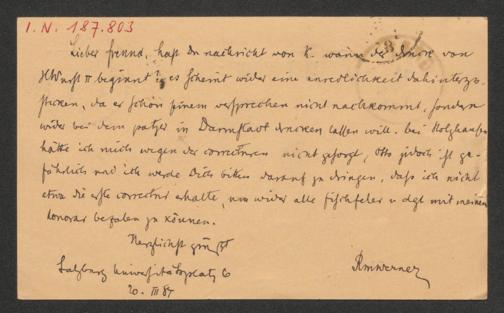 I.N. 187.803
Lieber freund, hast Du nachricht von K. wann der druck von
HWurst II beginnt? es scheint wider eine unredlichkeit dahinterzu-
stecken, da er schon seinem versprechen nicht nachkommt, sondern
wider bei dem patzer in Darmstadt drucken lassen will. bei Holzhausen
hätte ich mich wegen der correcturen nicht gesorgt, Otto jedoch ist ge-
fährlich und ich werde Dich bitten darauf zu dringen, daß ich nicht
etwa die erste correctur erhalte, um wider alle fischfeler u dgl mit meinem
honorar bezalen zu können.
Herzlichst grüßt
RMWerner
Salzburg Universitätsplatz 6
20. III 87